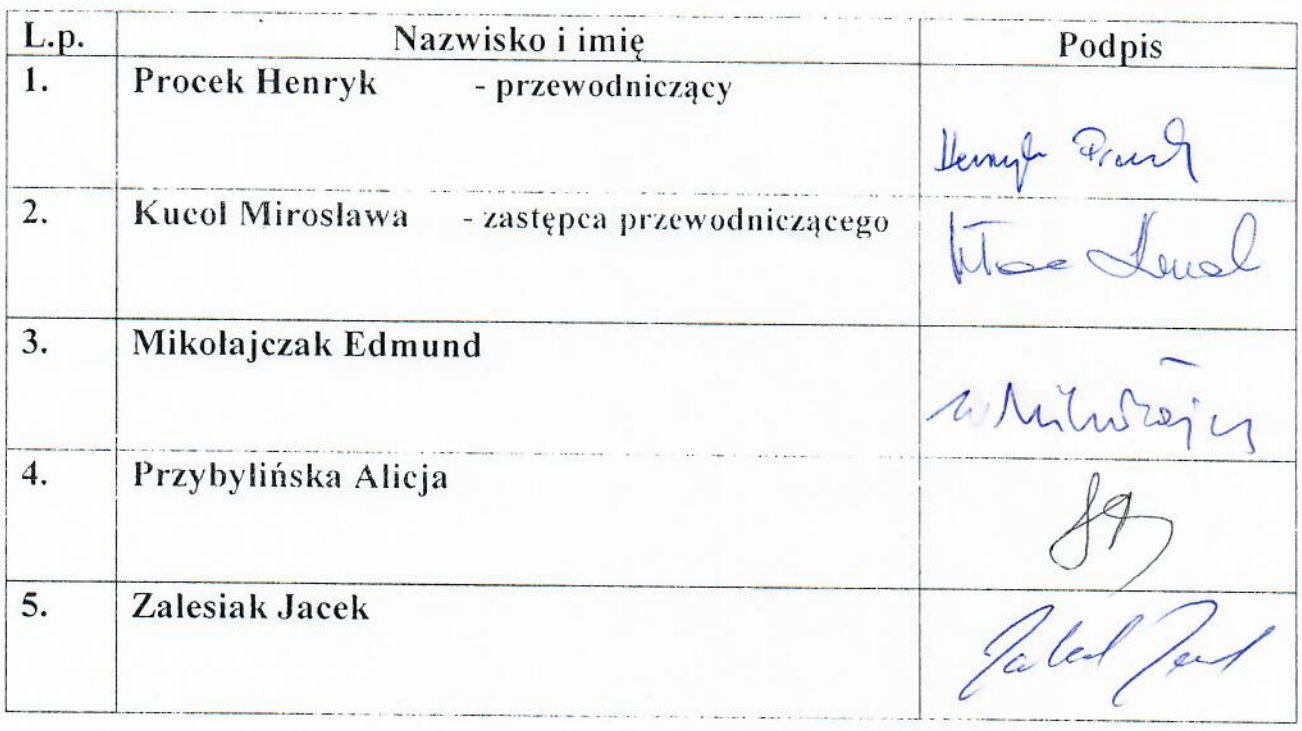 L.p. Nazwisko i imię Podpis
1. Procek Henryk - przewodniczący
Henryk Procek
2. Kucol Mirosława - zastępca przewodniczącego
Kucol
3. Mikołajczak Edmund
4. Przybylińska Alicja
5. Zalesiak Jacek